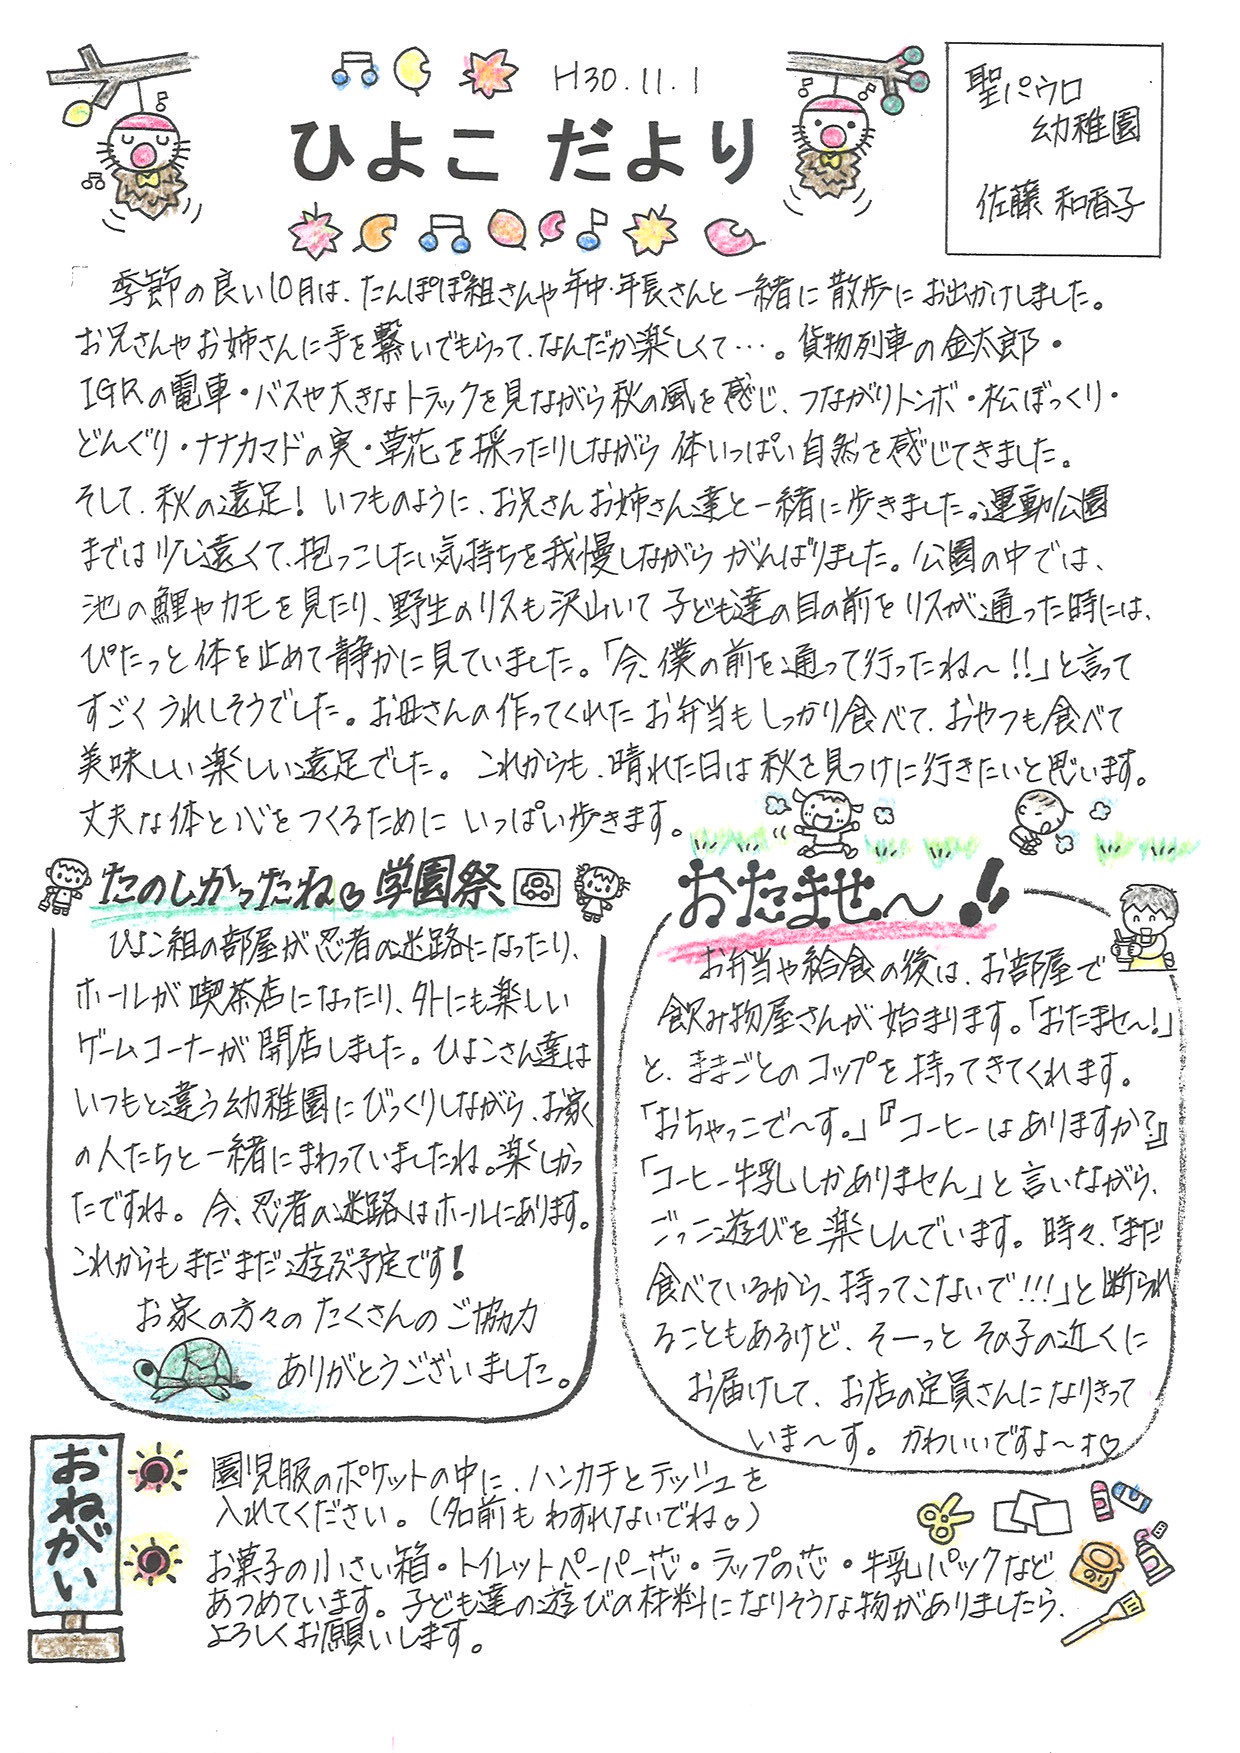 H30.11.1
ひよこ だより
聖パウロ
幼稚園
佐藤 和香子
季節の良い10月は、たんぽぽ組さんや年中・年長さんと一緒に散歩にお出かけしました。
お兄さんやお姉さんに手を繋いでもらって、なんだか楽しくて…。貨物列車の金太郎・
IGRの電車・バスや大きなトラックを見ながら秋の風を感じ、つながりトンボ・松ぼっくり・
どんぐり・ナナカマドの実・草花を採ったりしながら体いっぱい自然を感じてきました。
そして、秋の遠足！いつものように、お兄さんお姉さん達と一緒に歩きました。運動公園
までは少し遠くて、抱っこしたい気持ちを我慢しながらがんばりました。公園の中では、
池の鯉やカモを見たり、野生のリスも沢山いて子ども達の目の前をリスが通った時には、
ぴたっと体を止めて静かに見ていました。「今、僕の前を通って行ったね～！！」と言って
すごくうれしそうでした。お母さんの作ってくれたお弁当もしっかり食べて、おやつも食べて
美味しい楽しい遠足でした。これからも、晴れた日は秋を見つけに行きたいと思います。
丈夫な体と心をつくるためにいっぱい歩きます。
たのしかったね♡学園祭
ひよこ組の部屋が忍者の迷路になったり、
ホールが喫茶店になったり、外にも楽しい
ゲームコーナーが開店しました。ひよこさん達は
いつもと違う幼稚園にびっくりしながら、お家
の人たちと一緒にまわっていましたね。楽しかっ
たですね。今、忍者の迷路はホールにあります。
これからもまだまだ遊ぶ予定です！
お家の方々のたくさんのご協力
ありがとうございました。
おたませ～！！
お弁当や給食の後は、お部屋で
飲み物屋さんが始まります。「おたませ～！」
と、ままごとのコップを持ってきてくれます。
「おちゃっこで～す。」『コーヒーはありますか？』
「コーヒー牛乳しかありません」と言いながら、
ごっこ遊びを楽しんでいます。時々、「まだ
食べているから、持ってこないで！！！」と断られ
ることもあるけど、そーっとその子の近くに
お届けして、お店の定員さんになりきって
いま～す。かわいいですよ～す♡
おねがい
園児服のポケットの中に、ハンカチとテッシュを
入れてください。（名前もわすれないでね♡）
お菓子の小さい箱・トイレットペーパー芯・ラップの芯・牛乳パックなど
あつめています。子ども達の遊びの材料になりそうな物がありましたら、
よろしくお願いします。
のり